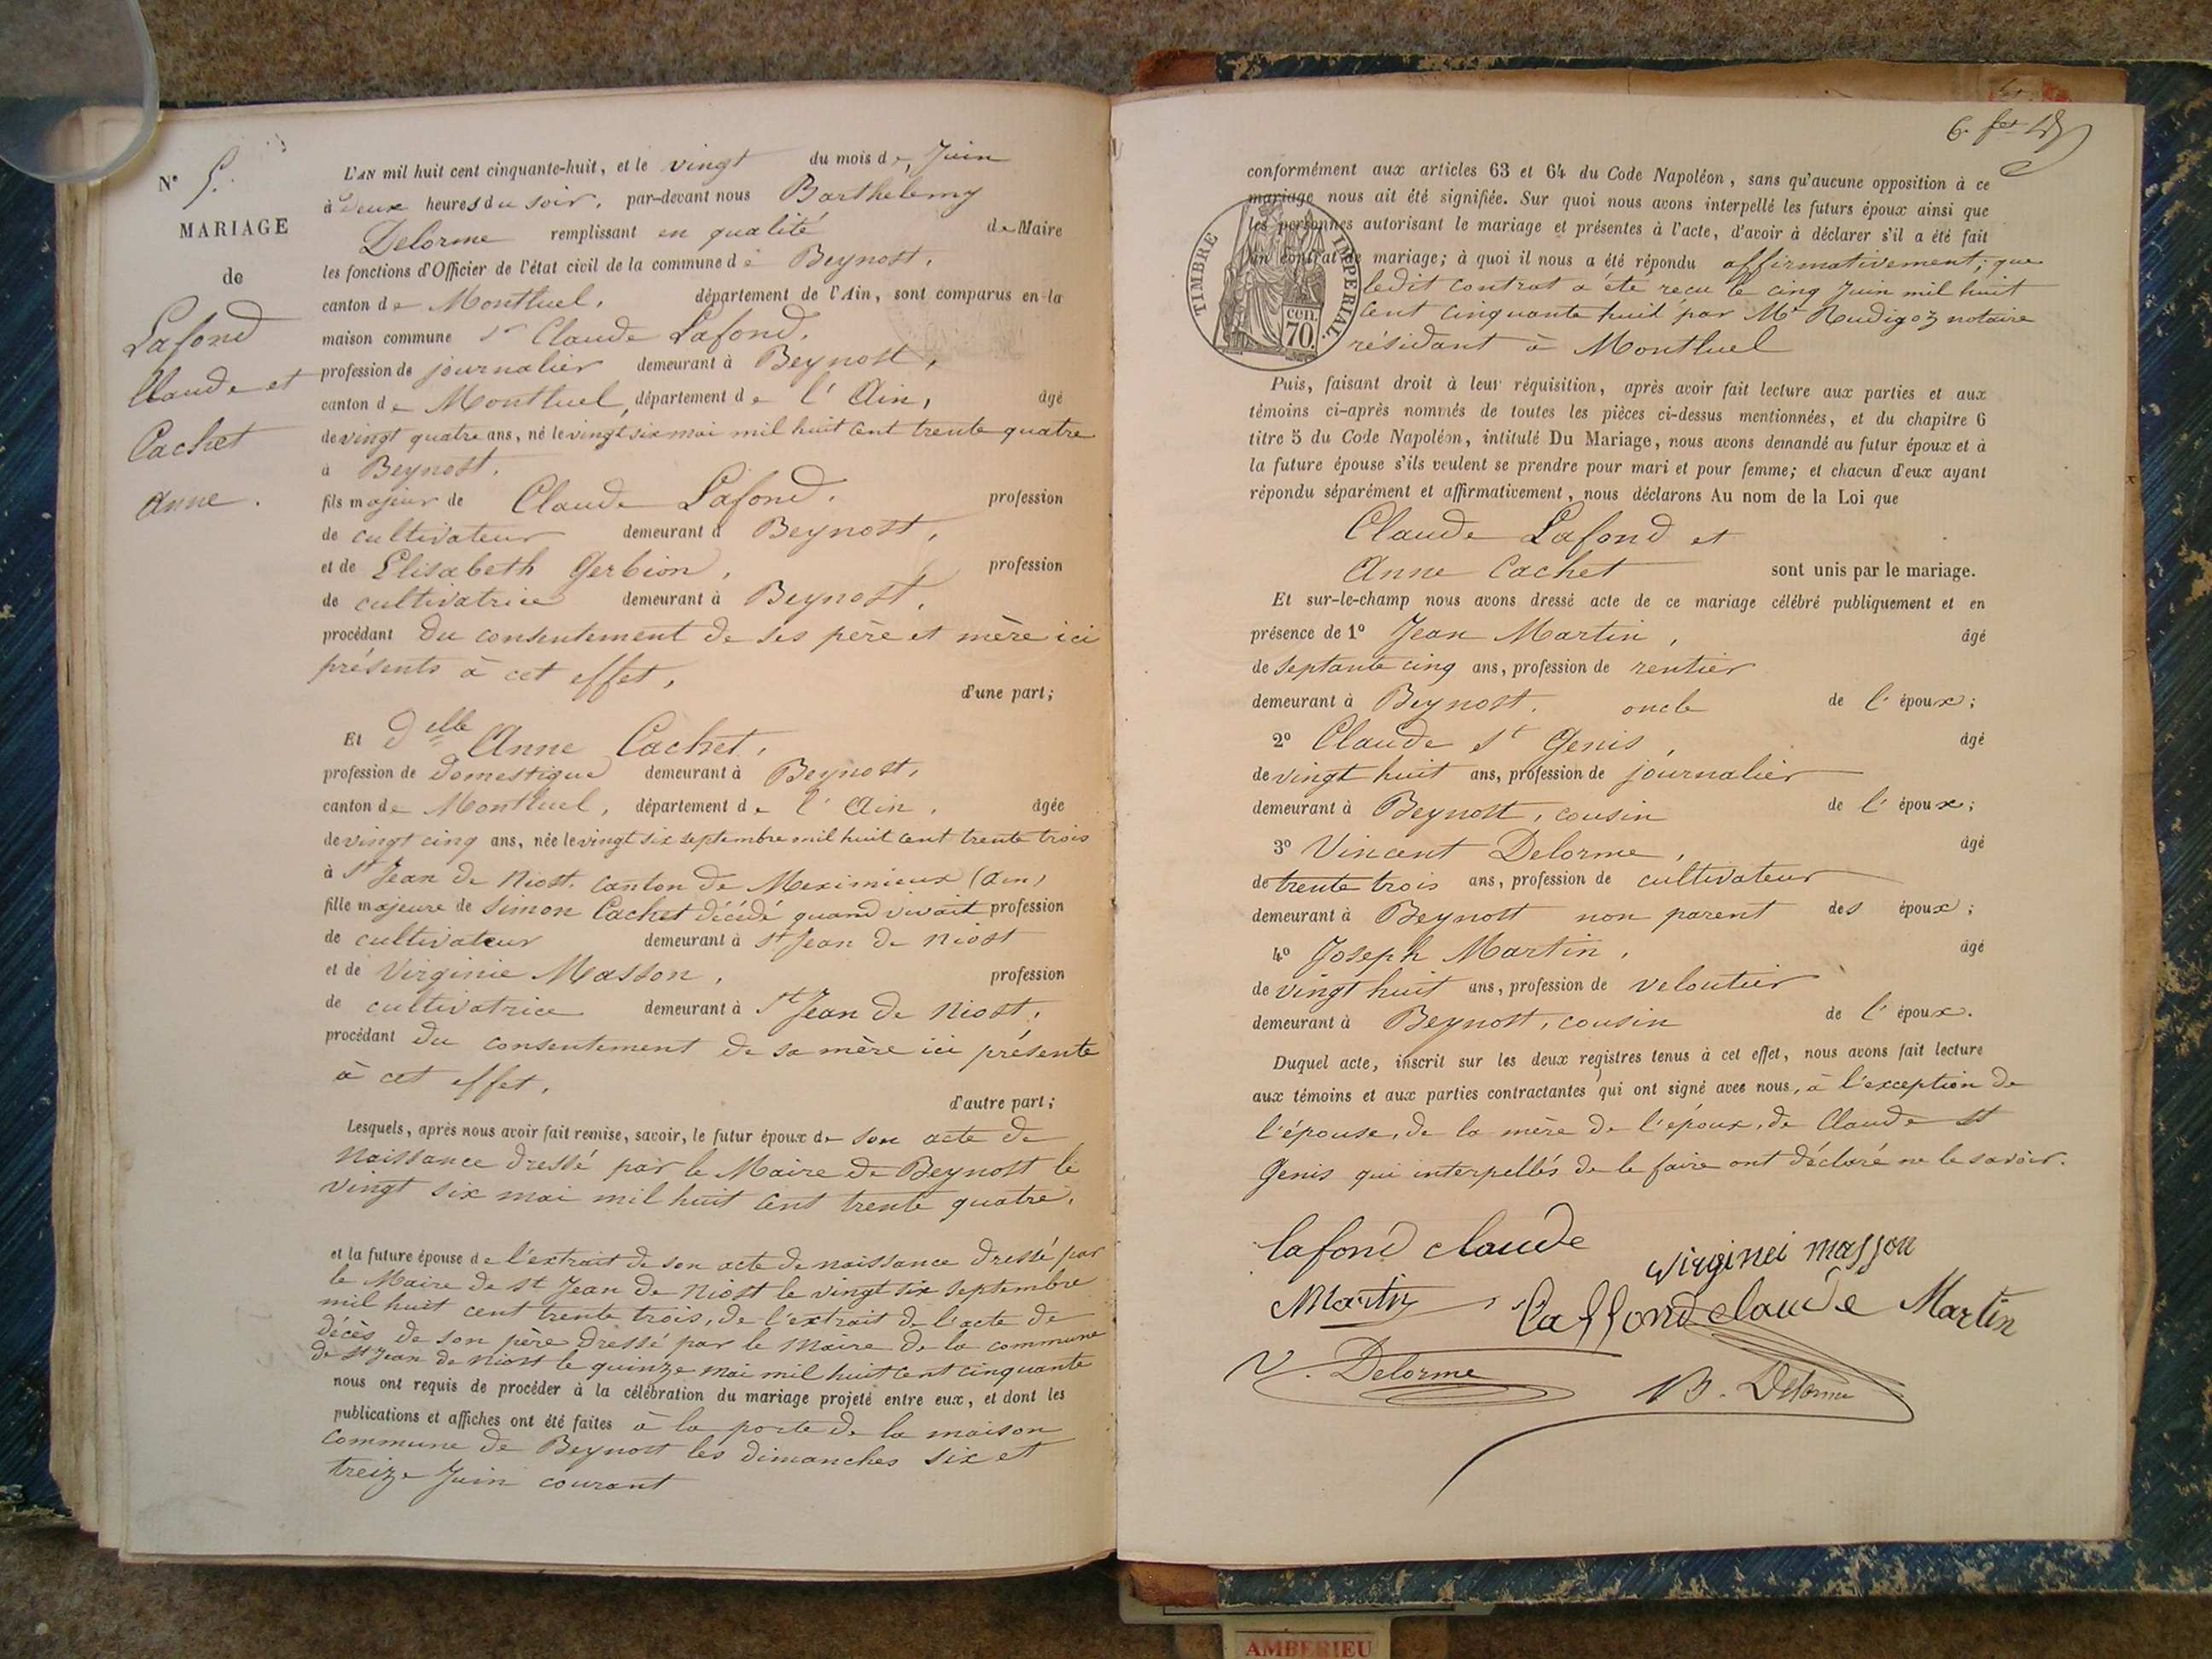 N° 5.
MARIAGE
de
Lafond
Claude et
Cachet
Anne.
L'AN mil huit cent cinquante-huit, et le vingt du mois de Juin
à deux heures du soir, par-devant nous Barthelemy
Delorme remplissant en qualité de Maire
les fonctions d'Officier de l'état civil de la commune de Beynost,
canton de Montluel, département de l'Ain, sont comparus en la
maison commune sr Claude Lafond,
profession de journalier demeurant à Beynost,
canton de Montluel, département de l'Ain, âgé
de vingt quatre ans, né le vingt six mai mil huit cent trente quatre
à Beynost,
fils majeur de Claude Lafond, profession
de cultivateur demeurant à Beynost,
et de Elisabeth Gerbion, profession
de cultivatrice demeurant à Beynost,
procédant du consentement de ses père et mère ici
présents à cet effet, d'une part;
Et delle Anne Cachet,
profession de domestique demeurant à Beynost,
canton de Montluel, département de l'Ain, âgée
de vingt cinq ans, née le vingt six septembre mil huit cent trente trois
à St Jean de Niost, canton de Meximieux (Ain)
fille majeure de Simon Cachet décédé quand vivait profession
de cultivateur demeurant à St Jean de Niost
et de Virginie Masson, profession
de cultivatrice demeurant à St Jean de Niost,
procédant du consentement de sa mère ici présente
à cet effet, d'autre part;
Lesquels, après nous avoir fait remise, savoir, le futur époux de son acte de
naissance dressé par le Maire de Beynost le
vingt six mai mil huit cent trente quatre,
et la future épouse de l'extrait de son acte de naissance dressé par
le Maire de St Jean de Niost le vingt six septembre
mil huit cent trente trois, de l'extrait de l'acte de
décès de son père dressé par le Maire de la commune
de St Jean de Niost le quinze mai mil huit cent cinquante
nous ont requis de procéder à la célébration du mariage projeté entre eux, et dont les
publications et affiches ont été faites à la porte de la maison
commune de Beynost les dimanches six et
treize Juin courant
6.
conformément aux articles 63 et 64 du Code Napoléon, sans qu'aucune opposition à ce
mariage nous ait été signifiée. Sur quoi nous avons interpellé les futurs époux ainsi que
les personnes autorisant le mariage et présentes à l'acte, d'avoir à déclarer s'il a été fait
un contrat de mariage; à quoi il nous a été répondu affirmativement; que
ledit contrat a été reçu le cinq Juin mil huit
cent cinquante huit par Me Rudigoz notaire
résidant à Montluel
TIMBRE IMPERIAL
cen.
70.
Puis, faisant droit à leur réquisition, après avoir fait lecture aux parties et aux
témoins ci-après nommés de toutes les pièces ci-dessus mentionnées, et du chapitre 6
titre 5 du Code Napoléon, intitulé Du Mariage, nous avons demandé au futur époux et à
la future épouse s'ils veulent se prendre pour mari et pour femme; et chacun d'eux ayant
répondu séparément et affirmativement, nous déclarons Au nom de la Loi que
Claude Lafond et
Anne Cachet sont unis par le mariage.
Et sur-le-champ nous avons dressé acte de ce mariage célébré publiquement et en
présence de 1° Jean Martin, âgé
de septante cinq ans, profession de rentier
demeurant à Beynost, oncle de l'époux;
2° Claude St Genis, âgé
de vingt huit ans, profession de journalier
demeurant à Beynost, cousin de l'époux;
3° Vincent Delorme, âgé
de trente trois ans, profession de cultivateur
demeurant à Beynost non parent des époux;
4° Joseph Martin, âgé
de vingt huit ans, profession de veloutier
demeurant à Beynost, cousin de l'époux.
Duquel acte, inscrit sur les deux registres tenus à cet effet, nous avons fait lecture
aux témoins et aux parties contractantes qui ont signé avec nous, à l'exception de
l'épouse, de la mère de l'époux, de Claude St
Genis qui interpellés de le faire ont déclaré ne le savoir.
lafond claude
virginei masson
Martin
laffond claude Martin
V. Delorme
B. Delorme
AMBERIEU